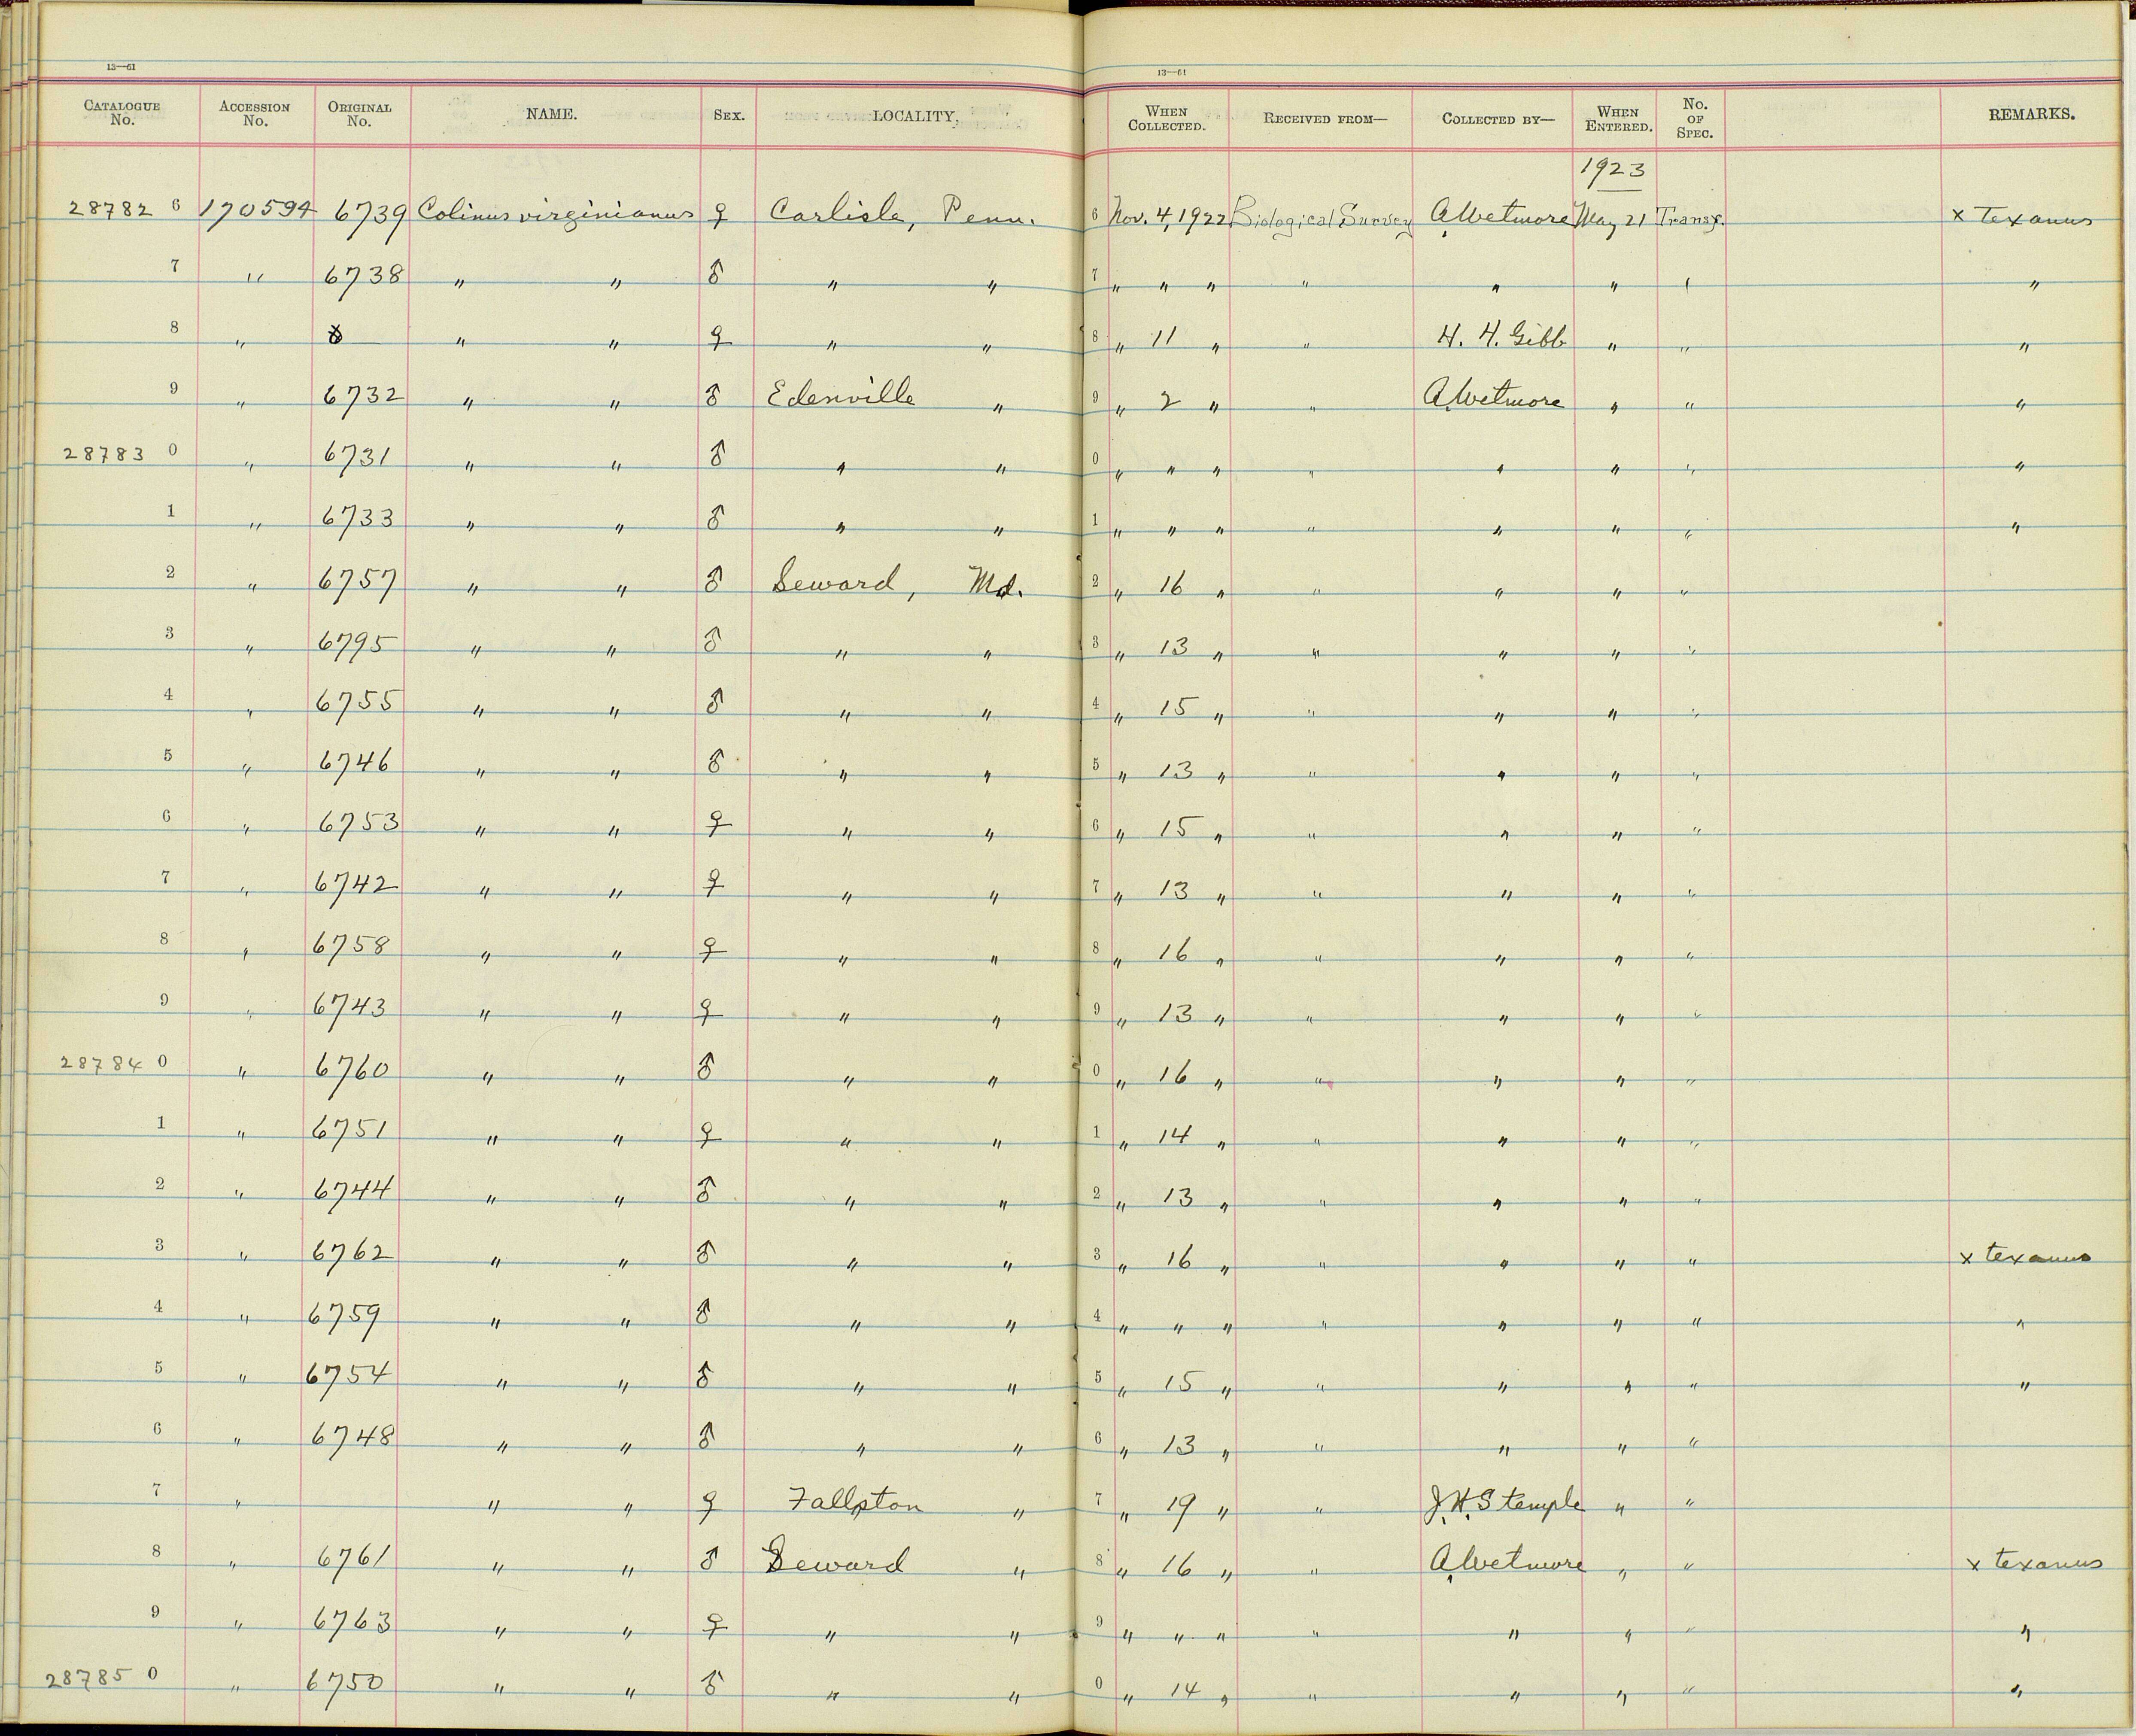 13—61 13—61
CATALOGUE No. ACCESSION No. ORIGINAL No. NAME. SEX. LOCALITY. WHEN COLLECTED. RECEIVED FROM— COLLECTED BY— WHEN ENTERED. No. OF SPEC. REMARKS.
1923
28782 6 170594 6739 Colinus virginianus ♀ Carlisle, Penn. 6 Nov. 4, 1922 Biological Survey A. Wetmore May 21 Transf. x Texanus
7 " 6738 " " ♂ " " 7 " " " " " " " "
8 " " " ♀ " " 8 " 11 " " H. H. Gibb " " "
9 " 6732 " " ♂ Edenville " 9 " 2 " " A. Wetmore " " "
28783 0 " 6731 " " ♂ " " 0 " " " " " " " "
1 " 6733 " " ♂ " " 1 " " " " " " " "
2 " 6757 " " ♂ Seward, Md. 2 " 16 " " " " "
3 " 6795 " " ♂ " " 3 " 13 " " " " "
4 " 6755 " " ♂ " " 4 " 15 " " " " "
5 " 6746 " " ♂ " " 5 " 13 " " " " "
6 " 6753 " " ♀ " " 6 " 15 " " " " "
7 " 6742 " " ♀ " " 7 " 13 " " " " "
8 " 6758 " " ♀ " " 8 " 16 " " " " "
9 " 6743 " " ♀ " " 9 " 13 " " " " "
28784 0 " 6760 " " ♂ " " 0 " 16 " " " " "
1 " 6751 " " ♀ " " 1 " 14 " " " " "
2 " 6744 " " ♂ " " 2 " 13 " " " " "
3 " 6762 " " ♂ " " 3 " 16 " " " " " x texanus
4 " 6759 " " ♂ " " 4 " " " " " " " "
5 " 6754 " " ♂ " " 5 " 15 " " " " " "
6 " 6748 " " ♂ " " 6 " 13 " " " " "
7 " " " ♀ Fallston " 7 " 19 " " J. H. Stemple " "
8 " 6761 " " ♂ Seward " 8 " 16 " " A. Wetmore " " x texanus
9 " 6763 " " ♀ " " 9 " " " " " " " "
28785 0 " 6750 " " ♂ " " 0 " 14 " " " " " "